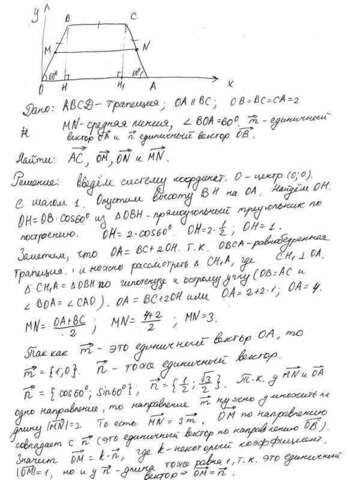 y
B
C
M
N
O
60°
H
H₁
A
x
Дано: ABCD - трапеция; OA ∥ BC; OB=BC=CA=2
MN-средняя линия, ∠BOA=60° m⃗ - единичный
вектор OA⃗ и n⃗ единичный вектор OB⃗.
Найти: AC⃗, OM⃗, ON⃗ и MN⃗.
Решение: введём систему координат. O - центр (0;0).
с шагом 1. Опустим высоту BH на OA. Найдём OH.
OH=OB·cos60° из △OBH-прямоугольный треугольник по
построению. OH=2·cos60° OH=2·½; OH=1.
Заметим, что OA=BC+2OH. т.к. OBCA-равнобедренная
трапеция, и можно рассмотреть △CH₁A, где CH₁⊥OA.
△CH₁A=△OBH по гипотенузе и острому углу (OB=AC и
∠BOA=∠CAO). OA=BC+2OH или OA=2+2·1; OA=4.
MN=(OA+BC)/2; MN=(4+2)/2; MN=3.
Так как m⃗ - это единичный вектор OA, то
m⃗={1,0}. n⃗ - тоже единичный вектор.
n⃗={cos60°; sin60°}, n⃗={½; √3/2}. Т.к. у MN⃗ и OA⃗
одно направление, то направление m⃗ нужно умножить на
длину |MN⃗|=3 То есть MN⃗=3m⃗. OM⃗ по направлению
совпадает с n⃗ (это единичный вектор по направлению OB⃗).
Значит OM⃗=k·n⃗, где k-некоторый коэффициент.
|OM⃗|=1, но и у n⃗-длина тоже равна 1, т.к. это единичный
вектор ⇒ OM⃗=n⃗.